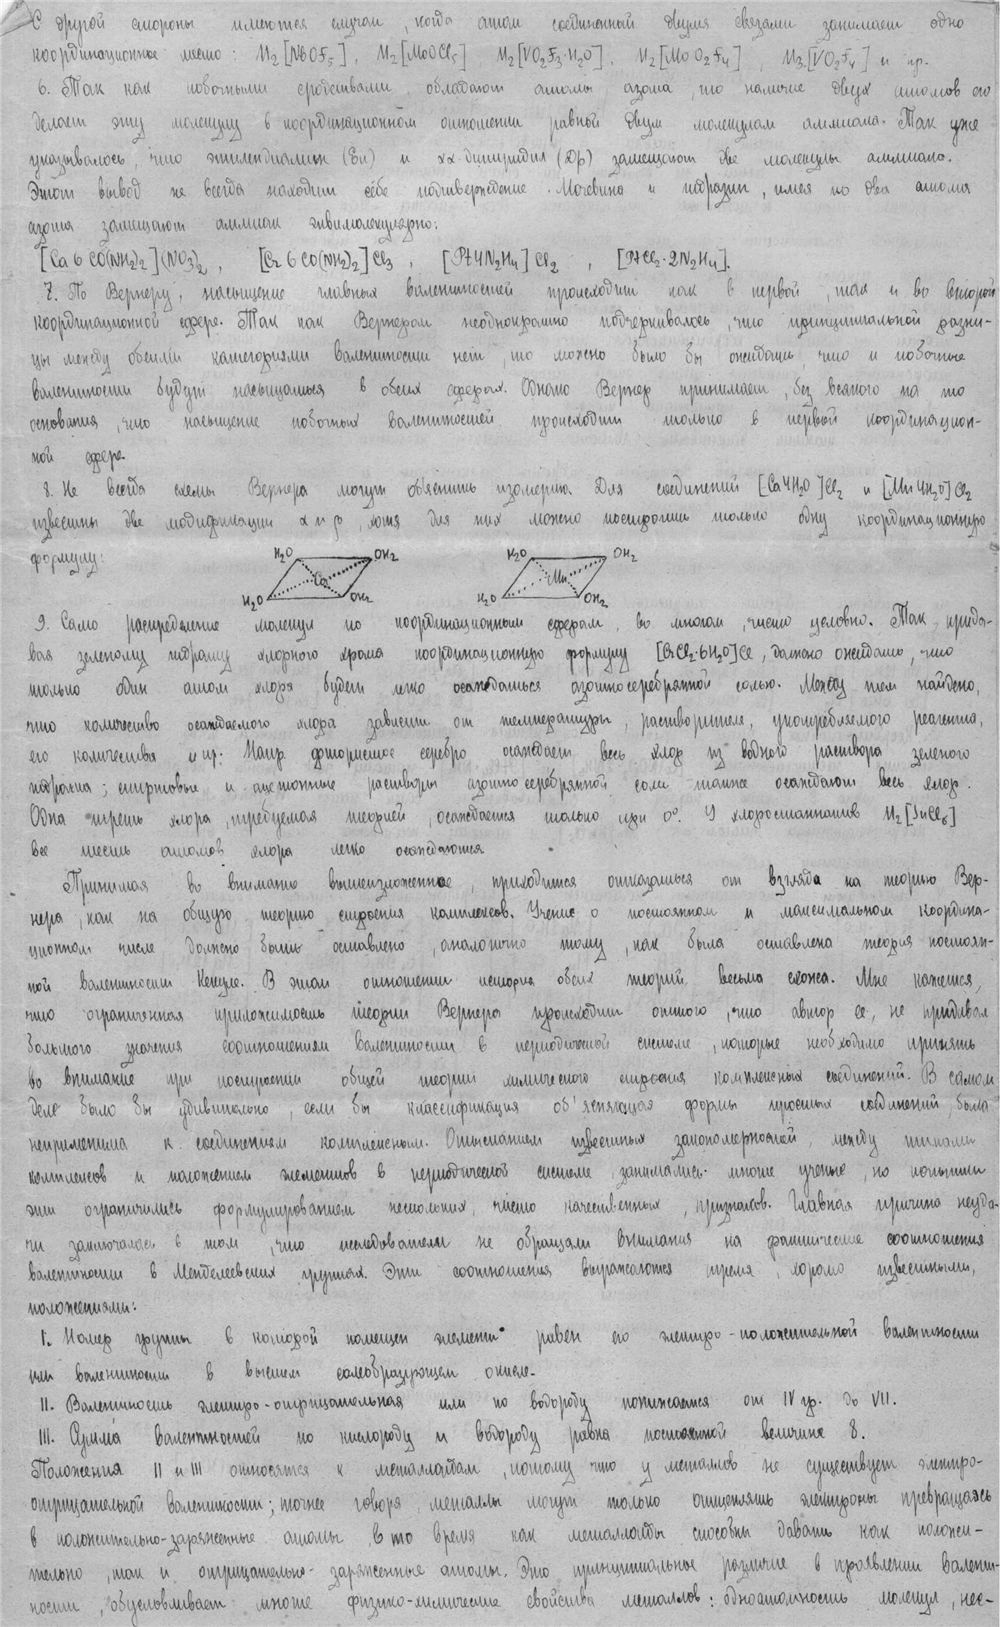 С другой стороны имеются случаи, когда атом соединенный двумя связами занимает одно
координационное место: M₂[NbOF₅], M₂[MoOCl₅], M₂[VO₂F₃·H₂O], M₂[MoO₂F₄], M₃[VO₂F₄] и пр.
6. Так как побочными сродствами обладают атомы азота, то наличие двух атомов его
делает эту молекулу в координационном отношении равной двум молекулам аммиака. Так уже
указывалось, что этилендиамин (En) и αα-дипиридил (Dp) замещают две молекулы аммиака.
Этот вывод не всегда находит себе подтверждение. Мочевина и гидразин, имея по два атома
азота замещают аммиак эквимолекулярно:
[Ca 6 CO(NH₂)₂](NO₃)₂, [Cr 6 CO(NH₂)₂]Cl₃, [Pt4N₂H₄]Cl₂, [PtCl₂·2N₂H₄].
7. По Вернеру, насыщение главных валентностей происходит как в первой, так и во второй
координационной сфере. Так как Вернером неоднократно подчеркивалось, что принципиальной разни-
цы между обеими категориями валентности нет, то можно было бы ожидать, что и побочные
валентности будут насыщаться в обеих сферах. Однако Вернер принимает, без всякого на то
основания, что насыщение побочных валентностей происходит только в первой координацион-
ной сфере.
8. Не всегда схемы Вернера могут об'яснить изомерию. Для соединений [Co4H₂O]Cl₂ и [Mn4H₂O]Cl₂
известны две модификации α и β, хотя для них можно построить только одну координационную
формулу:
H₂O OH₂ H₂O OH₂
Co Mn
H₂O OH₂ H₂O OH₂
9. Само распределение молекул по координационным сферам, во многом, чисто условно. Так, прида-
вая зеленому гидрату хлорного хрома координационную формулу [CrCl₂·6H₂O]Cl, должно ожидать, что
только один атом хлора будет легко осаждаться азотносеребряной солью. Между тем найдено,
что количество осаждаемого хлора зависит от температуры, растворителя, употребляемого реагента,
его количества и пр. Напр. фтористое серебро осаждает весь хлор из водного раствора зеленого
гидрата; спиртовые и ацетонные растворы азотносеребряной соли также осаждают весь хлор.
Одна треть хлора, требуемая теорией, осаждается только при 0°. У хлоростаннатов M₂[SnCl₆]
все шесть атомов хлора легко осаждаются
Принимая во внимание вышеизложенное, приходится отказаться от взгляда на теорию Вер-
нера, как на общую теорию строения комплексов. Учение о постоянном и максимальном координа-
ционном числе должно быть оставлено, аналогично тому, как была оставлена теория постоян-
ной валентности Кекуле. В этом отношении история обеих теорий весьма схожа. Мне кажется,
что ограниченная приложимость теории Вернера происходит оттого, что автор ее, не придавал
большого значения соотношениям валентности в периодической системе, которые необходимо принять
во внимание при построении общей теории химического строения комплексных соединений. В самом
деле было бы удивительно, если бы классификация об'ясняющая формы простых соединений, была
неприменима к соединениям комплексным. Отысканием известных закономерностей, между типами
комплексов и положением элементов в периодической системе, занимались многие ученые, но попытки
эти ограничились формулированием нескольких, чисто качественных, признаков. Главная причина неуда-
чи заключалась в том, что исследователи не обращали внимания на фактические соотношения
валентности в Менделеевских группах. Эти соотношения выражаются тремя, хорошо известными,
положениями:
I. Номер группы в которой помещен элемент равен его электро-положительной валентности
или валентности в высшем солеобразующем окисле.
II. Валентность электро-отрицательная или по водороду понижается от IV гр. до VII.
III. Сумма валентностей по кислороду и водороду равна постоянной величине 8.
Положения II и III относятся к металлоидам, потому что у металлов не существует электро-
отрицательной валентности; точнее говоря, металлы могут только отщеплять электроны превращаясь
в положительно-заряженные атомы, в то время как металлоиды способны давать как положи-
тельно, так и отрицательно-заряженные атомы. Это принципиальное различие в проявлении валент-
ности, обусловливает многие физико-химические свойства металлов: одноатомность молекул, нес-